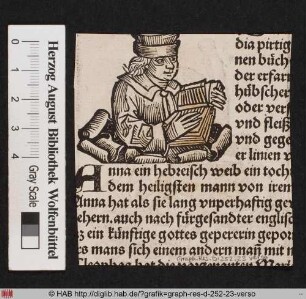 dia pirtig
nen büch
der erfar
hübscher
oder verf
vnd fleiß
vnd gege
er linien v
Anna ein hebreisch weib ein toch
dem heiligsten mann von iren
Anna hat als sie lang vnperhaftig ge
ehern. auch nach fürgesandter englisc
z ein künftige gottes gepererin gepor
s mans sich einen andern mañ mit n
Herzog August Bibliothek Wolfenbüttel
Gray Scale
0 1 2 3 4
Graph. Res. D: 252.23
© HAB http://diglib.hab.de/?grafik=graph-res-d-252-23-verso